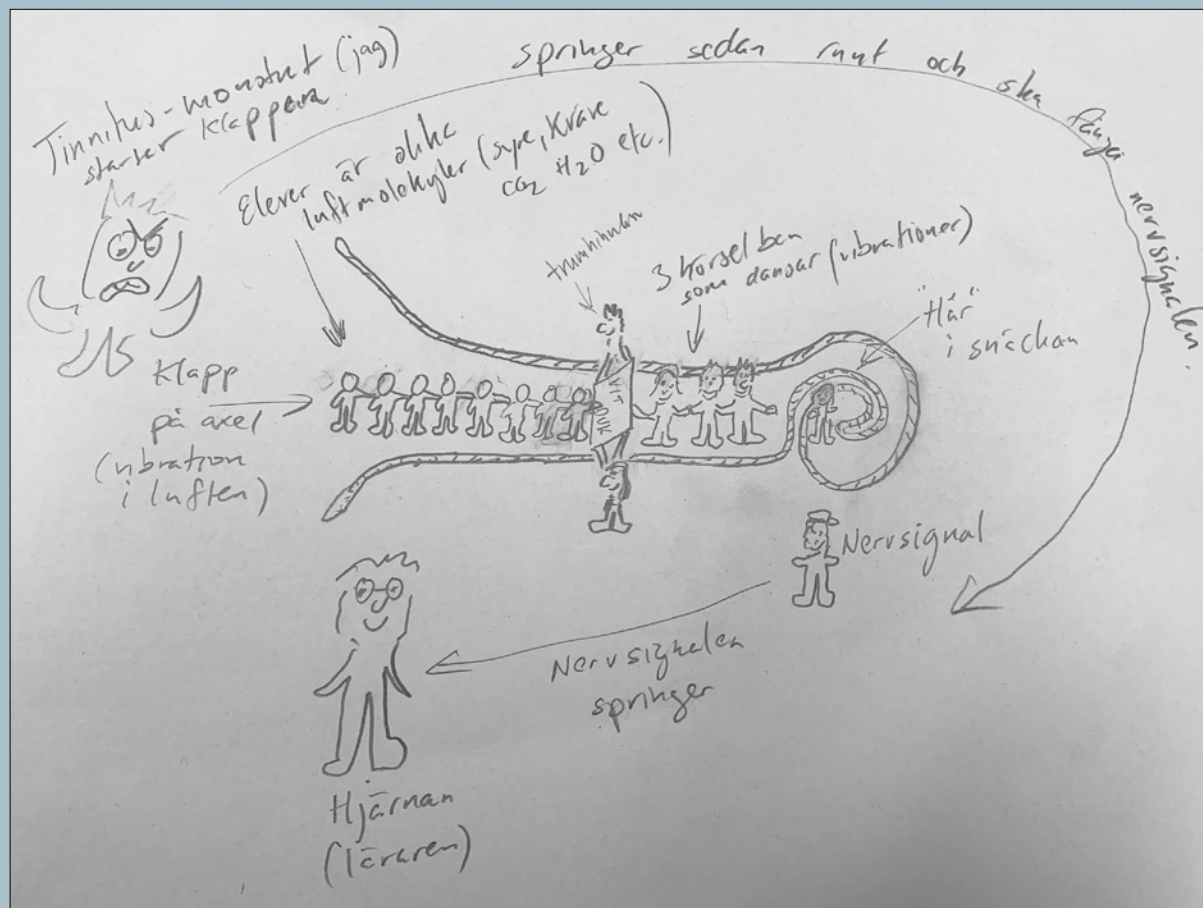 Tinnitus-monstret (jag)
startar klappen
springer sedan runt och ska fånga nervsignalen
Elever är olika
luftmolekyler (syre, kväve
CO2 H2O etc.)
trumhinnan
3 hörselben
som dansar (vibrationer)
"Hår"
i snäckan
Klapp
på axel
(vibration
i luften)
Nervsignal
Nervsignalen
springer
Hjärnan
(läraren)